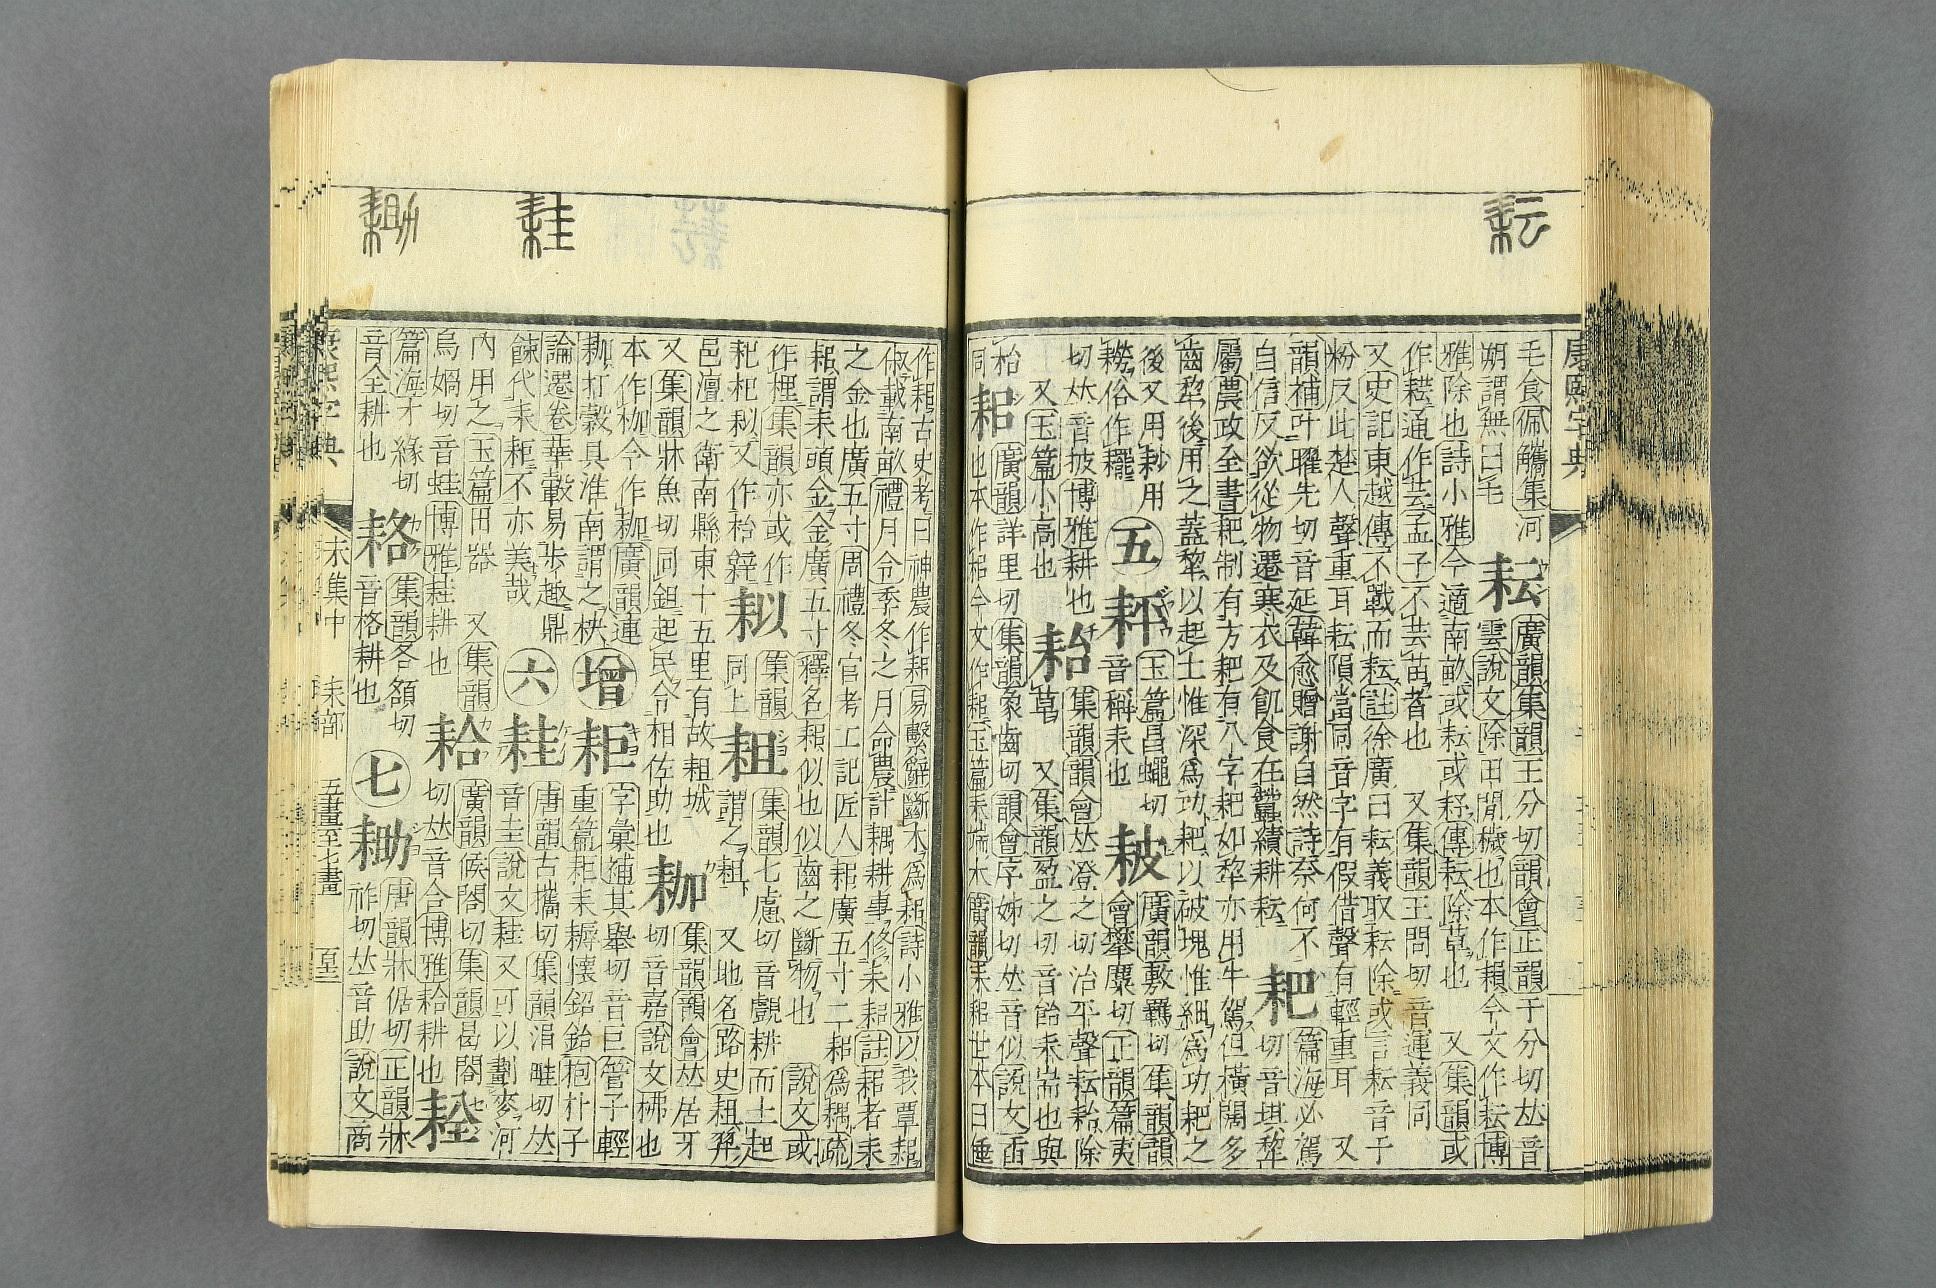 耘
康熙字典
毛食佩觿集河
朔謂無曰毛
耘
廣韻集韻王分切韻會正韻于分切𠀤音
雲說文除田閒穢也本作𦔐今文作耘博
雅除也詩小雅今適南畝或耘或耔傳耘除草也
又集韻或
作耺通作芸孟子不芸苗者也
又集韻王問切音運義同
又史記東越傳不戰而耘註徐廣曰耘義取耘除或言耘音于
粉反此楚人聲重耳耘隕當同音字有假借聲有輕重耳
又
韻補叶曜先切音延韓愈贈謝自然詩奈何不
自信反欲從物遷寒衣及飢食在蠶績耕耘
耙
篇海必駕
切音垻犂
屬農政全書耙制有方耙有八字耙如犂亦用牛駕但橫闊多
齒犂後用之蓋犂以起土惟深爲功耙以破塊惟細爲功耙之
後又用耖用
耮俗作䆉
五
𦓰
玉篇昌蠅切
音稱耒也
耚
廣韻敷羈切集韻韻
會攀糜切正韻篇夷
切𠀤音披博雅耕也
耛
集韻韻會𠀤澄之切治平聲耘耛除
草
又集韻盈之切音飴耒耑也與
枱同
又玉篇小高也
耜
廣韻詳里切集韻象齒切韻會序姊切𠀤音似說文臿
也本作梠今文作耜玉篇耒端木廣韻耒耜世本曰倕
作耜古史考曰神農作耜易繫辭斲木爲耜詩小雅以我覃耜
俶載南畝禮月令季冬之月命農計耦耕事修耒耜註耜者耒
之金也廣五寸周禮冬官考工記匠人耜廣五寸二耜爲耦疏
耜謂耒頭金金廣五寸釋名耜似也似齒之斷物也
說文或
作梩集韻亦或作
耟杞耛又作枱辝
耛
集韻
同上
耝
集韻七慮切音覰耕而土起
謂之耝
又地名路史耝羿
邑澶之衛南縣東十五里有故耝城
又集韻牀魚切同鉏起民令相佐助也
耞
集韻韻會𠀤居牙
切音嘉說文柫也
本作枷今作耞廣韻連
耞打穀具淮南謂之柍
增
耟
字彙補其舉切音巨管子輕
重篇耟耒耨懷鉊鈶枹朴子
論遷卷華轂易步趍鼎
餗代耒耟不亦美哉
六
耒圭
唐韻古攜切集韻涓畦切𠀤
音圭說文耒圭又可以劃麥河
內用之玉篇田器
又集韻
烏媧切音蛙博雅耒圭耕也
耠
廣韻候閤切集韻曷閤
切𠀤音合博雅耠耕也
耒全
篇海才緣切
音全耕也
耒各
集韻各額切
音格耕也
七
耡
唐韻牀倨切正韻牀
祚切𠀤音助說文商
耒圭
耡
康熙字典
未集中
耒部
五畫至七畫